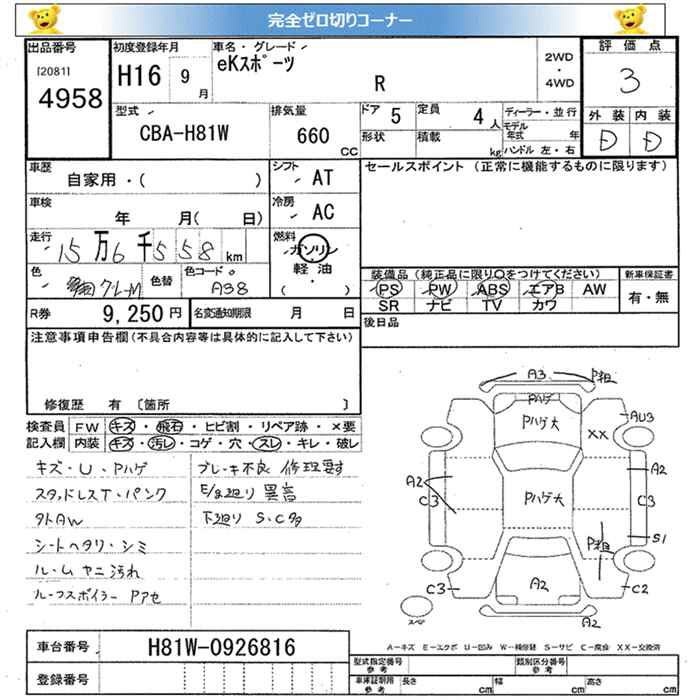 完全ゼロ切りコーナー
出品番号
[2081]
4958
初度登録年月
H16 9 月
車名・グレード
eKスポーツ
R
2WD
・
4WD
評価点
3
型式
CBA-H81W
排気量
660 cc
ドア 5
定員 4 人
形状
積載 kg
ディーラー・並行
モデル年式 年
ハンドル 左・右
外装 内装
D D
車歴
自家用・( )
シフト
AT
セールスポイント (正常に機能するものに限ります)
車検
年 月( 日)
冷房
AC
走行
15万6千558km
燃料
ガソリン
軽油
( ・ )
色
クレーM
色替
色コード
A38
装備品 (純正品に限り〇をつけてください)
新車保証書
PS PW ABS エアB AW
有・無
SR ナビ TV カワ
R券
9,250円
名変通知期限 月 日
後日品
注意事項申告欄(不具合内容等は具体的に記入して下さい)
修復歴 有 〔箇所 〕
検査員
記入欄
FW キズ・飛石・ヒビ割・リペア跡・×要
内装 キズ・汚レ・コゲ・穴・スレ・キレ・破レ
キズ・U・Pハゲ
スタッドレスT・パンク
外AW
シートヘタリ・シミ
ルームヤニ汚れ
ルーフスポイラーPアセ
ブレーキ不良 修理要す
E/g廻り 異音
下廻り S・C多
A3 P粗
Pハゲ
Pハゲ大
XX
AU3
A2 A2
C3 C3
Pハゲ大
S1
P粗
C3 A2 C2
スペア
A2
A-キズ E-エクボ U-凹み W-補修跡 S-サビ C-腐食 XX-交換済
車台番号
H81W-0926816
登録番号
型式指定番号 参考
類別区分番号 参考
車庫証明用 参考
長さ cm 幅 cm 高さ cm